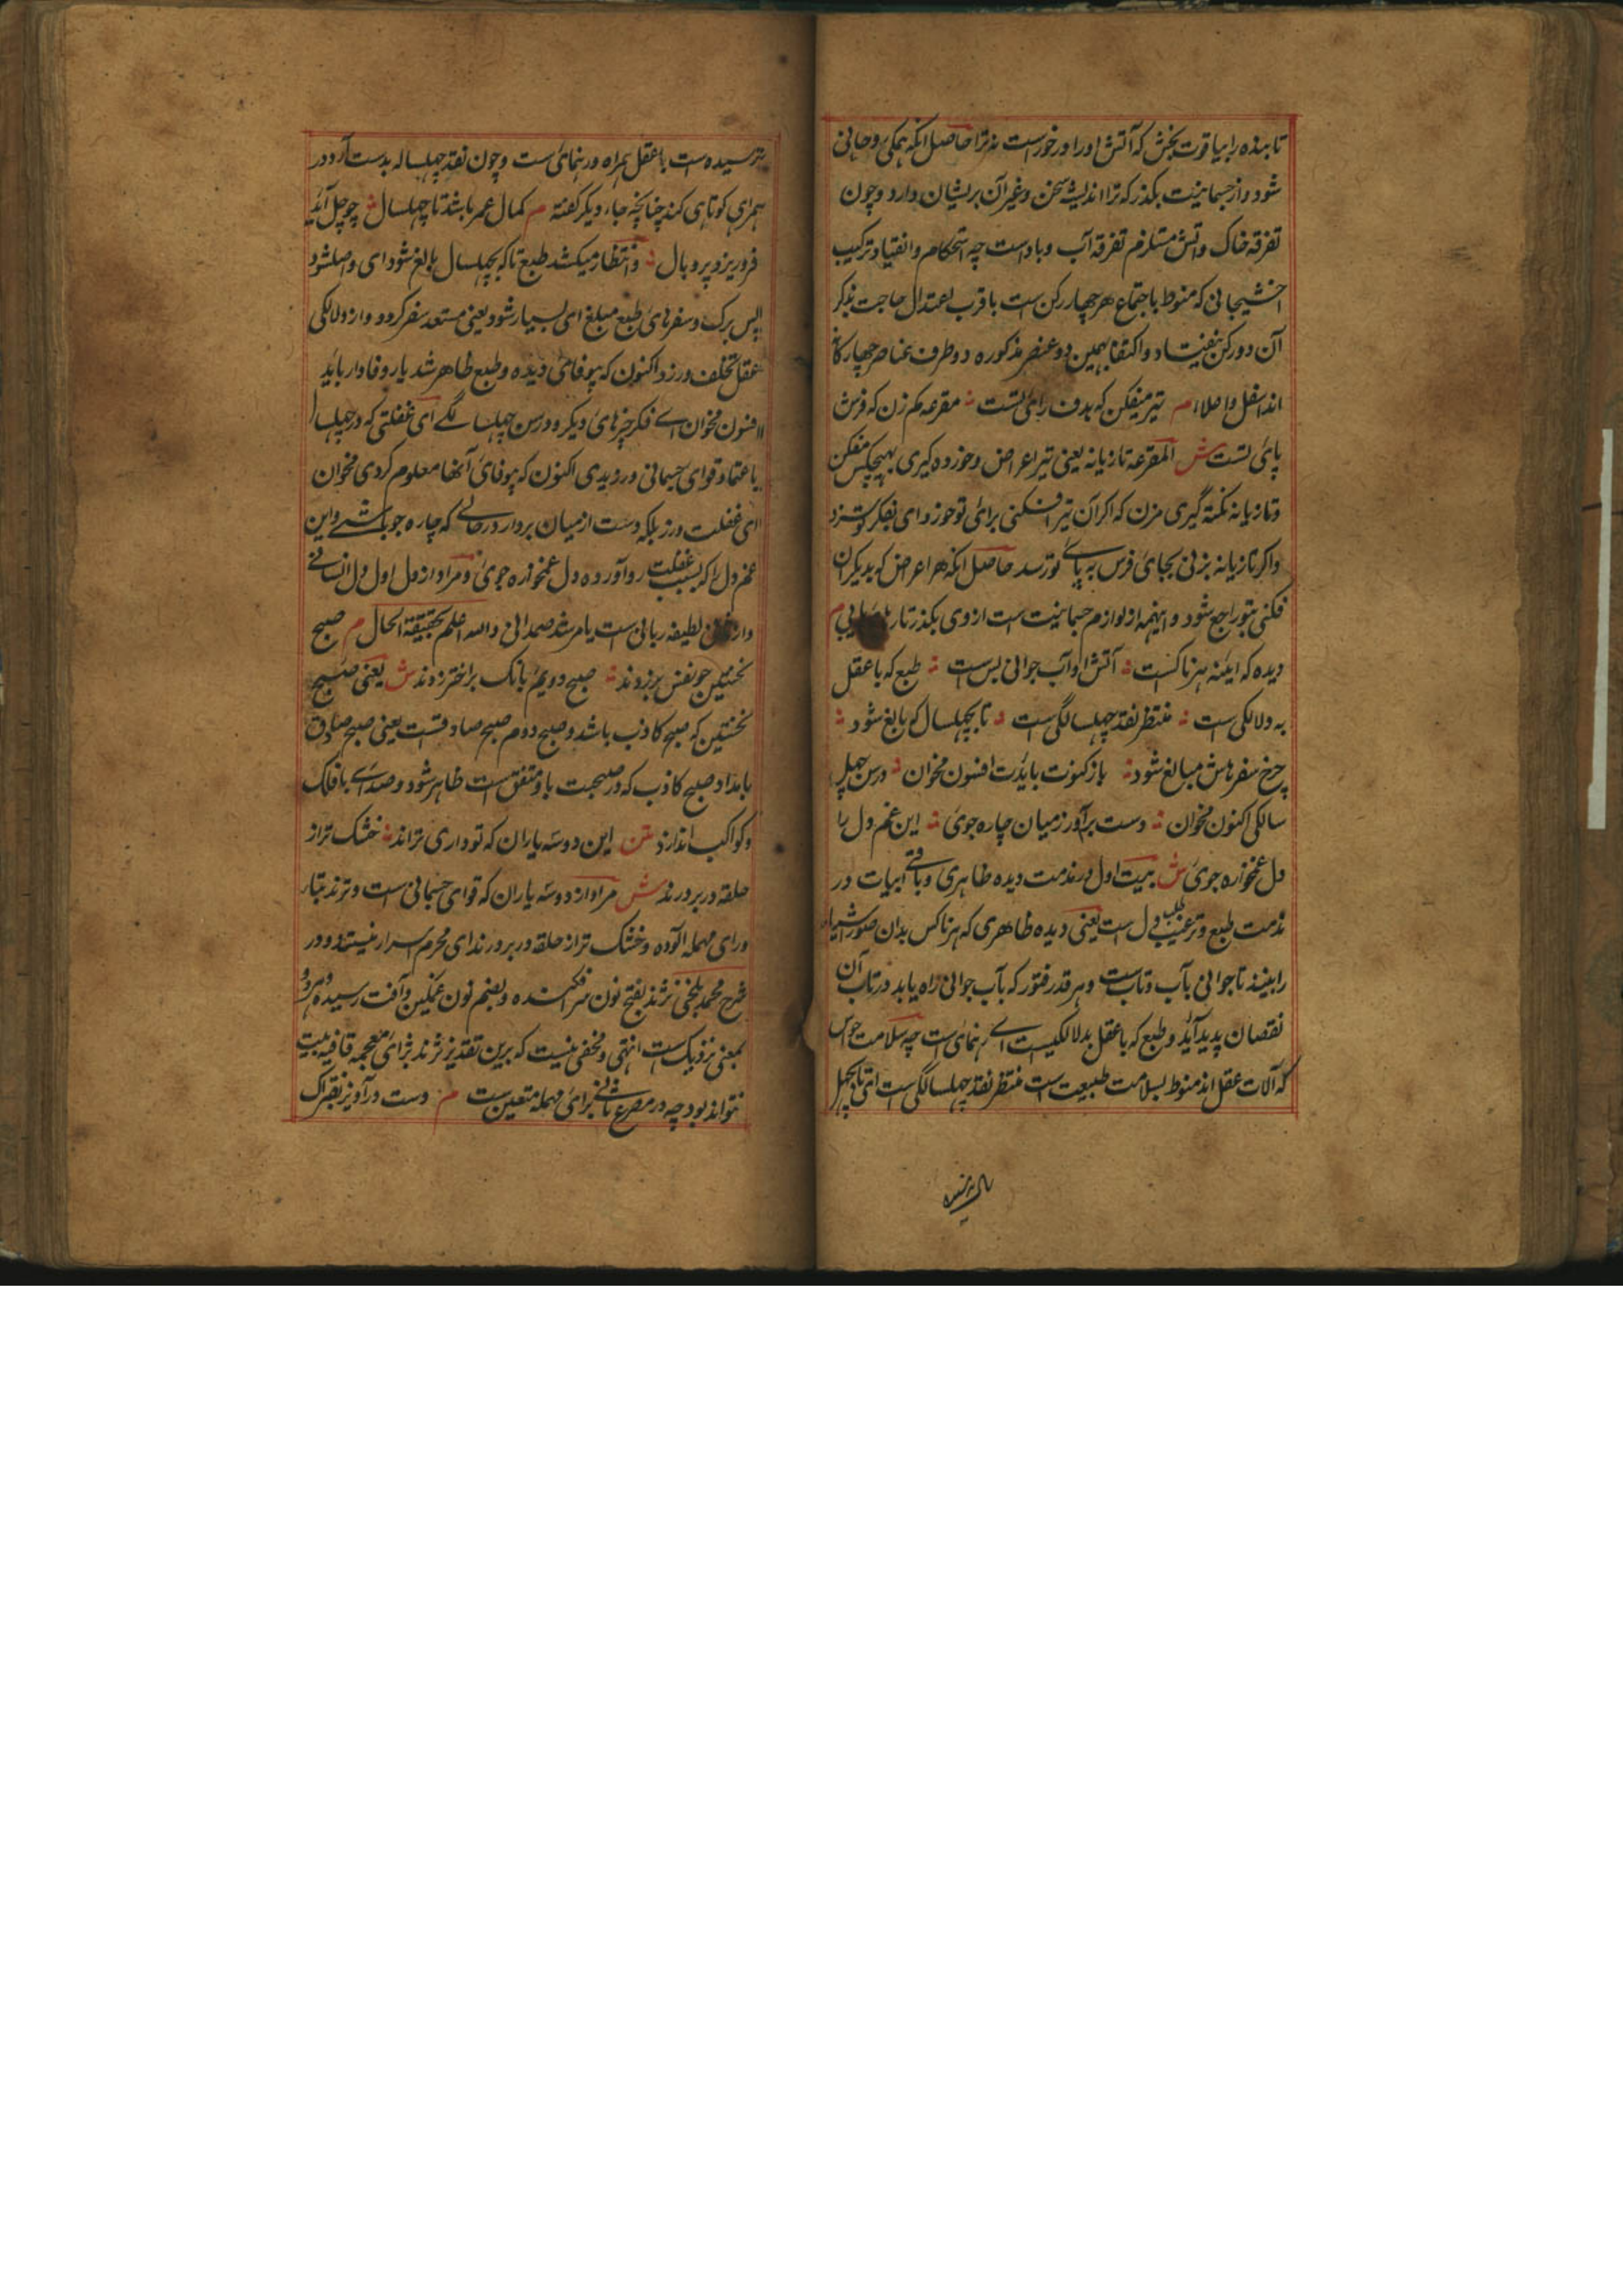 تابنده را بیاقوت بخش که آتش او را در خورست نه ترا حاصل آنکه همگی روحانی
شود و از جسمانیت بگذر که ترا اندیشه سخن و غیر آن پریشان دارد و چون
تفرقه خاک و آتش مستلزم تفرقه آب و باد است چه استحکام و انقیاد ترکیب
اخشیجانی که منوط باجتماع هر چهار رکن است با قرب اعتدال حاجت بذکر
آن دو رکن نیفتاد و اکتفا بهمین دو عنصر مذکوره دو طرف عناصر چهارگانه
اند اسفل و اعلاء م تیر میفکن که هدف رای تست مقرعه کم زن که فرس
پای تست ش المقرعه تازیانه یعنی تیر اعراض و خورده گیری بهیچکس مفکن
و تازیانه نکته گیری مزن که اگر آن تیر افکنی برای تو خورد ای بفکر تو
و اگر تازیانه بزنی بجای فرس به پای تو رسد حاصل آنکه هر اعراض که بدیگران
فکنی بتو راجع شود و اینهمه از لوازم جسمانیت است از وی بگذر تا م
دیده که آیینه هر ناکست آتش او آب جوانی بس ست طبع که با عقل
به دلالگی ست منتظر نقد چهل سالگی ست تا بچهل سال که بالغ شود
خرج سفرهاش مبالغ شود باز کنونت بایدت افسون مخوان درس چهل
سالگی اکنون مخوان دست برآور ز میان چاره جوی این غم دل را
دل غمخواره جوی ش بیت اول در مذمت دیده ظاهری و باقی ابیات در
مذمت طبع و ترغیب طلب دل است یعنی دیده ظاهری که هر ناکس بدان صور اشیاء
را بیند تا جوانی بآب و تاب ست و هر قدر فتور که بآب جوانی راه یابد در تاب آن
نقصان پدید آید و طبع که با عقل بدلالگیست ای رهنمای است چه سلامت حواس
که آلات عقل اند منوط بسلامت طبیعت است منتظر نقد چهل سالگی ست ای تا بچهل
نرسیده ست با عقل همراه و رهنمای ست و چون نقد چهل ساله بدست آرد در
همراهی کوتاهی کند چنانچه جاء دیگر گفته م کمال عمر باشد تا چهل سال چو چل آید
فرو ریزد پر و بال و انتظار میکشد طبع تا که بچهل سال بالغ شود ای واصل شود
پس برگ و سفرهای طبع مبلغ ای بسیار شود یعنی مستعد سفر گردد و از دلالگی
عقل تخلف ورزد اکنون که بیوفائی دیده و طبع ظاهر شد یار وفادار باید
افسون مخوان ای فکر چیزهای دیگر و درس چهل سالگی ای غفلتی که در چهل سال
باعتماد قوای جسمانی ورزیدی اکنون که بیوفائی آنها معلوم کردی مخوان
ای غفلت مورز بلکه دست از میان بردار در حالی که چاره جو باشی و این
غم دل را که بسبب غفلت رو آورده دل غمخواره جوی و مراد از دل اول دل انسانی
و از لطیفه ربانی ست یا مرشد صمدانی والله اعلم بحقیقة الحال م صبح
نخستین چو نفس برزند صبح دویم بانگ بر اختر زند ش یعنی صبح
نخستین که صبح کاذب باشد و صبح دوم صبح صادقست یعنی صبح صادق
بامداد صبح کاذب که در صبحت باو متفق است ظاهر شود و صدای بافلاک
و کواکب اندازد متن این دو سه یاران که تو داری ترند خشک تر از
حلقه در بر درند ش مراد از دو سه یاران که قوای جسمانی ست و ترند بتا
و رای مهمله آلوده و خشک تر از حلقه در بر درند ای محرم اسرار نیستند و در
شرح محمد بلخی نژند بفتح نون سر افکنده و بضم نون غمگین و آفت رسیده و هر دو
بمعنی نزدیک است انتهی و مخفی نیست که برین تقدیر نژند بزای معجمه قافیه بیت
نتواند بود چه در مصرع ثانی برای مهمله متعین ست م دست در آویز بفتراک